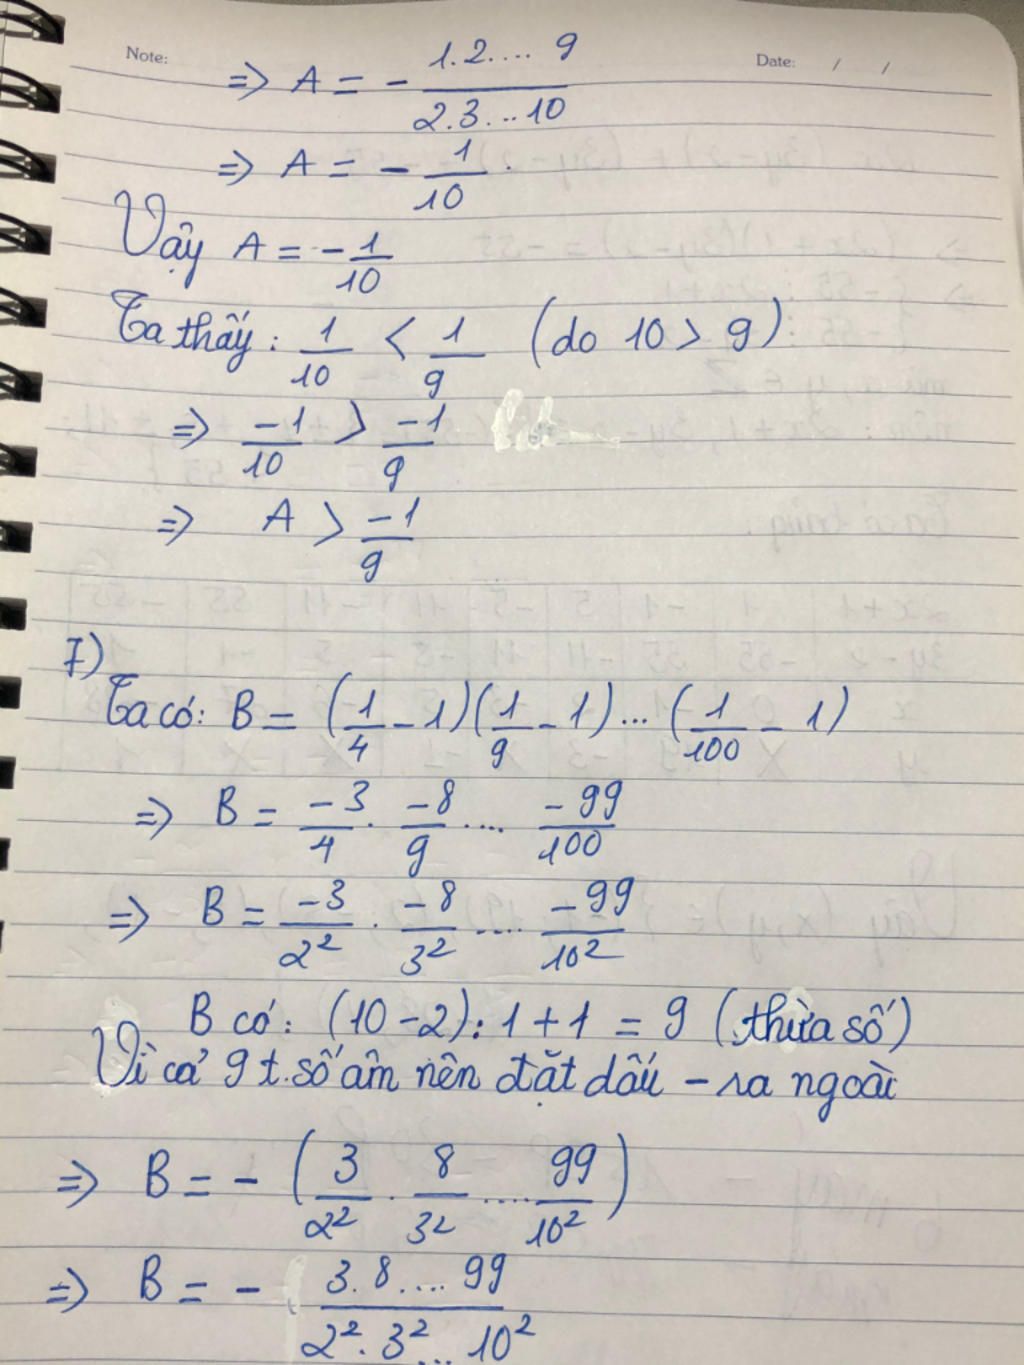 Note:
Date: / /
=> A = - \frac{1.2.... 9}{2.3...10}
=> A = - \frac{1}{10}.
Vậy A = - \frac{1}{10}
Ta thấy: \frac{1}{10} < \frac{1}{9} (do 10 > 9)
=> \frac{-1}{10} > \frac{-1}{9}
=> A > \frac{-1}{9}
7)
Ta có: B = (\frac{1}{4} - 1)(\frac{1}{9} - 1)...(\frac{1}{100} - 1)
=> B = \frac{-3}{4} . \frac{-8}{9} .... \frac{-99}{100}
=> B = \frac{-3}{2^2} . \frac{-8}{3^2} .... \frac{-99}{10^2}
B có: (10-2):1+1 = 9 (thừa số)
Vì cả 9 t.số âm nên đặt dấu - ra ngoài
=> B = - (\frac{3}{2^2} . \frac{8}{3^2} .... \frac{99}{10^2})
=> B = - \frac{3.8....99}{2^2.3^2...10^2}